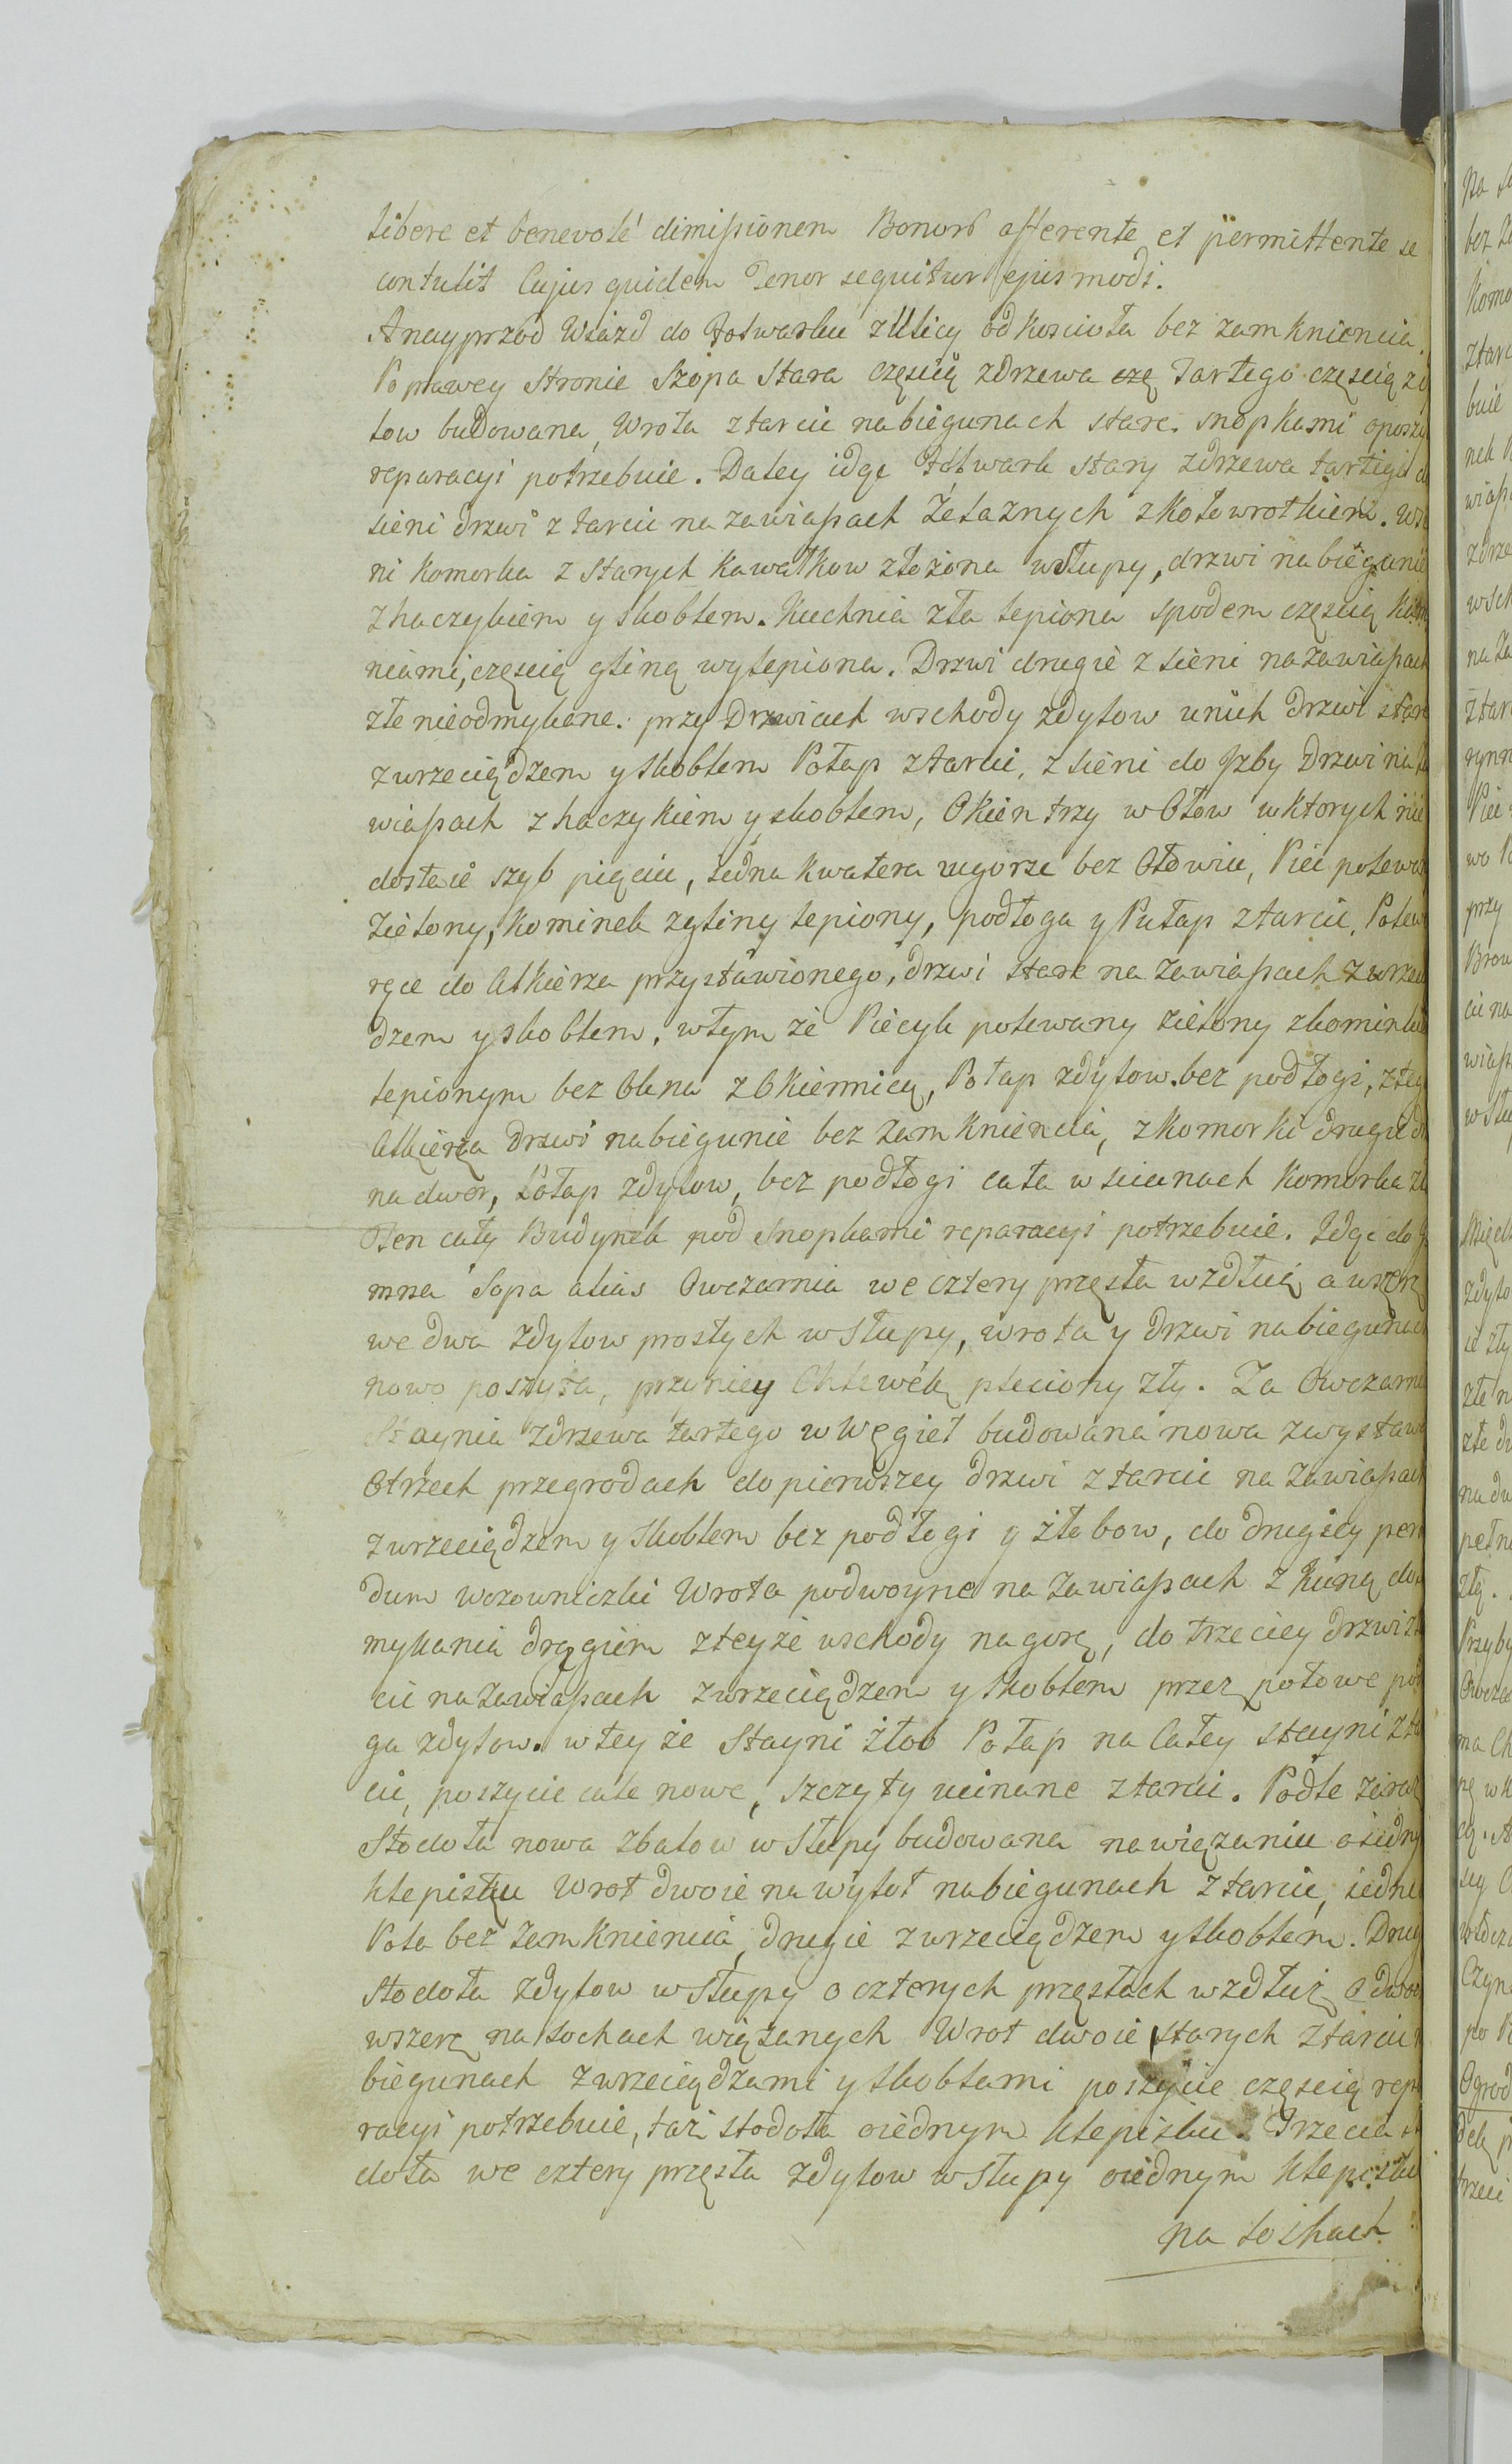 libere et benevolé dimissionem Bonorũ afferente et permittente se
contulit Cujus quidem Tenor sequitur ejusmodi.
A nayprzod Wiazd do Folwarku z Ulicy od Kosciola bez zamkniencia.
Po prawey Stronie Szopa Stara częscią zdrzewa czę Tartego częscią zdy
low budowana, Wrota z tarcic na biegunach stare. snopkami oposzy
reparacyi potrzebuie. Daley idąc Folwark stary zdrzewa tartego
sieni drzwi z tarcic na zawiasach Żelaznych z kołowrotkiem. Wsie
ni komorka z starych kawałkow złożona w słupy, drzwi na biegunie
z haczykiem y skoblem. Kuchnia zła lepiona spodem częscią kam
niami, częscią gliną wylepiona. Drzwi drugie z sieni na zawiasach
złe nieodmykane. przy Drzwiach wschody zdylow u nich drzwi stare
z wrzeciądzem y skoblem Połap z tarcic, z sieni do Jzby Drzwi na za
wiasach z haczykiem y skoblem, Okien trzy w Ołow w ktorych nie
dostaie szyb pięciu, iedna kwatera u gorze bez Ołowiu, Piec polewany
Zielony, kominek z gliny lepiony, podłoga y Pułap z tarcic. Po lewey
ręce do Alkierza przystawionego, drzwi stare na zawiasach z wrzecią
dzem y skoblem, w tym że Piecyk polewany zielony z kominkiem
lepionym bez okna z Okiennicą, Połap zdylow. bez podłogi, z tego
Alkierza Drzwi na biegunie bez zamkniencia, z komorki drugie
na dwor, Połap zdylow, bez podłogi cała w scianach Komorka zła
Ten cały Budynek pod snopkami reparacyi potrzebuie. Idąc do gu
mna Sopa alias Owczarnia we cztery przęsła wzdłuż a wszerz
we dwa zdylow prostych w słupy, wrota y drzwi na biegunach
nowo poszyta, przyniey Chlewek pleciony zły. Za Owczarnią
Staynia zdrzewa tartego w Węgieł budowana nowa z wystawą
O trzech przegrodach do pierwszey drzwi z tarcic na zawiasach
z wrzeciądzem y skoblem bez podłogi y żłobow, do drugiey per mo
dum wozowniczki Wrota podwoyne na zawiasach z kuną do za
mykania drągiem z teyże wschody na gorę, do trzeciey drzwi z tar
cic na zawiasach z wrzeciądzem y skoblem przez połowę podło
ga zdylow. w tey że Stayni żłob Połap na Całey stayni z tar
cic, poszycie całe nowe, szczyty ucinane z tarcic. Podle zaraz
Stodoła nowa zbalow w słupy budowana na wiązaniu o iednym
klepisku Wrot dwoie na wylot na biegunach z tarcic, iedne
Pole bez zamkniencia, drugie z wrzeciądzem y skoblem. Druga
Stodoła zdylow w słupy o czterych przęsłach wzdłuż o dwoch
wszerz na sochach wiązanych Wrot dwoie starych z tarcic na
biegunach z wrzeciądzami y skoblami poszycie częscią repa
racyi potrzebuie, taż stodoła o iednym klepisku. Trzecia sto
doła we cztery przęsła zdylow w słupy o iednym klepisku
na sochach